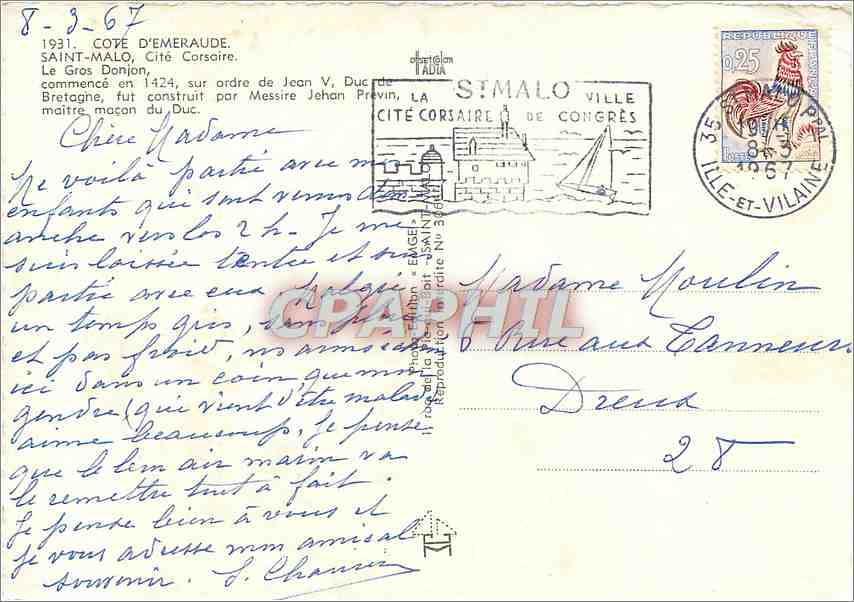 8-3-67
1931. COTE D'EMERAUDE.
SAINT-MALO, Cité Corsaire.
Le Gros Donjon,
commencé en 1424, sur ordre de Jean V, Duc de
Bretagne, fut construit par Messire Jehan Prévin,
maître maçon du Duc.
Chère Madame
Je voilà partie avec mes
enfants qui sont venus dim
anche vers les 2 h. Je me
suis laissée tentée et suis
partie avec eux. Malgré
un temps gris, sans pluie
et pas froid, ns sommes
ici dans un coin que mon
gendre (qui vient d'être malade)
aime beaucoup. Je pense
que le bon air marin va
le remettre tout à fait.
Je pense bien à vous et
je vous adresse mon amical
souvenir.
offset color
IADIA
Photo-Edition « EMGE »
11, rue de la Pie-qui-Boit - SAINT-MALO
Reproduction interdite N°
LA ST MALO VILLE
CITÉ CORSAIRE DE CONGRÈS
REPUBLIQUE FRANÇAISE
0,25
35 ST MALO PPAL
8-3
1967
ILLE-ET-VILAINE
Madame Moulin
8 Rue aux Tanneurs
Dreux
28
CPAPHIL